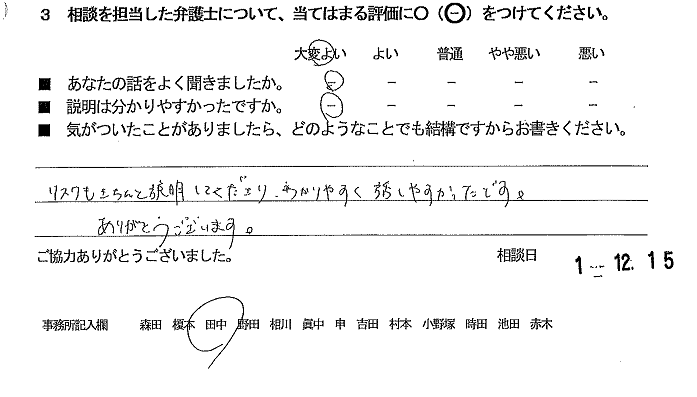 3 相談を担当した弁護士について、当てはまる評価に○（⊖）をつけてください。
大変よい よい 普通 やや悪い 悪い
■ あなたの話をよく聞きましたか。 − − − − −
■ 説明は分かりやすかったですか。 − − − − −
■ 気がついたことがありましたら、どのようなことでも結構ですからお書きください。
リスクもきちんと説明してくださり、わかりやすく話しやすかったです。
ありがとうございます。
ご協力ありがとうございました。 相談日 1 12. 15
事務所記入欄 森田 榎本 田中 野田 相川 眞中 申 吉田 村本 小野塚 時田 池田 赤木